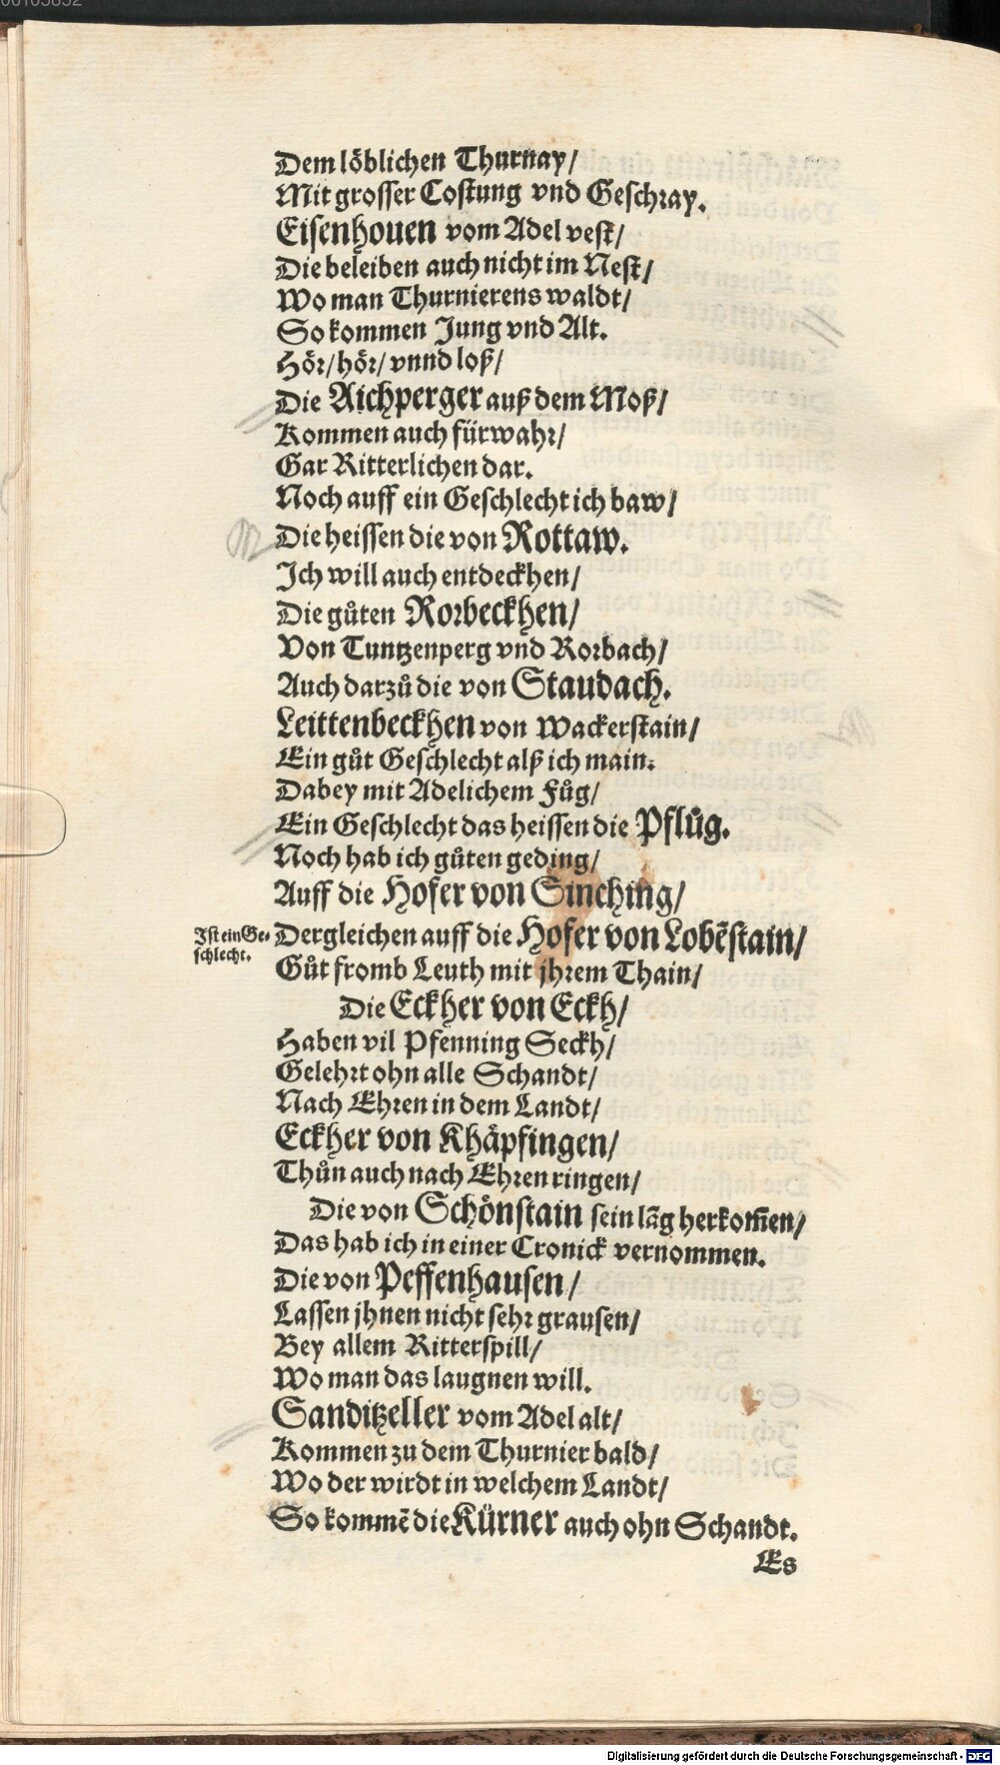 Dem löblichen Thurnay/
Mit grosser Costung vnd Geschray.
Eisenhouen vom Adel vest/
Die beleiben auch nicht im Nest/
Wo man Thurnierens waldt/
So kommen Jung vnd Alt.
Hör/ hör/ vnnd loß/
Die Aichperger auß dem Moß/
Kommen auch fürwahr/
Gar Ritterlichen dar.
Noch auff ein Geschlecht ich baw/
Die heissen die von Rottaw.
Ich will auch entdeckhen/
Die gůten Rorbeckhen/
Von Tuntzenperg vnd Rorbach/
Auch darzů die von Staudach.
Leittenbeckhen von Wackerstain/
Ein gůt Geschlecht alß ich main.
Dabey mit Adelichem Fůg/
Ein Geschlecht das heissen die Pflůg.
Noch hab ich gůten geding/
Auff die Hofer von Sinching/
Ist ein Ge-
schlecht.
Dergleichen auff die Hofer von Lobẽstain/
Gůt fromb Leuth mit jhrem Thain/
Die Eckher von Eckh/
Haben vil Pfenning Seckh/
Gelehrt ohn alle Schandt/
Nach Ehren in dem Landt/
Eckher von Khäpfingen/
Thůn auch nach Ehren ringen/
Die von Schönstain sein lãg herkom̃en/
Das hab ich in einer Cronick vernommen.
Die von Peffenhausen/
Lassen jhnen nicht sehr grausen/
Bey allem Ritterspill/
Wo man das laugnen will.
Sanditzeller vom Adel alt/
Kommen zu dem Thurnier bald/
Wo der wirdt in welchem Landt/
So kommẽ die Kürner auch ohn Schandt.
Es
Digitalisierung gefördert durch die Deutsche Forschungsgemeinschaft - DFG